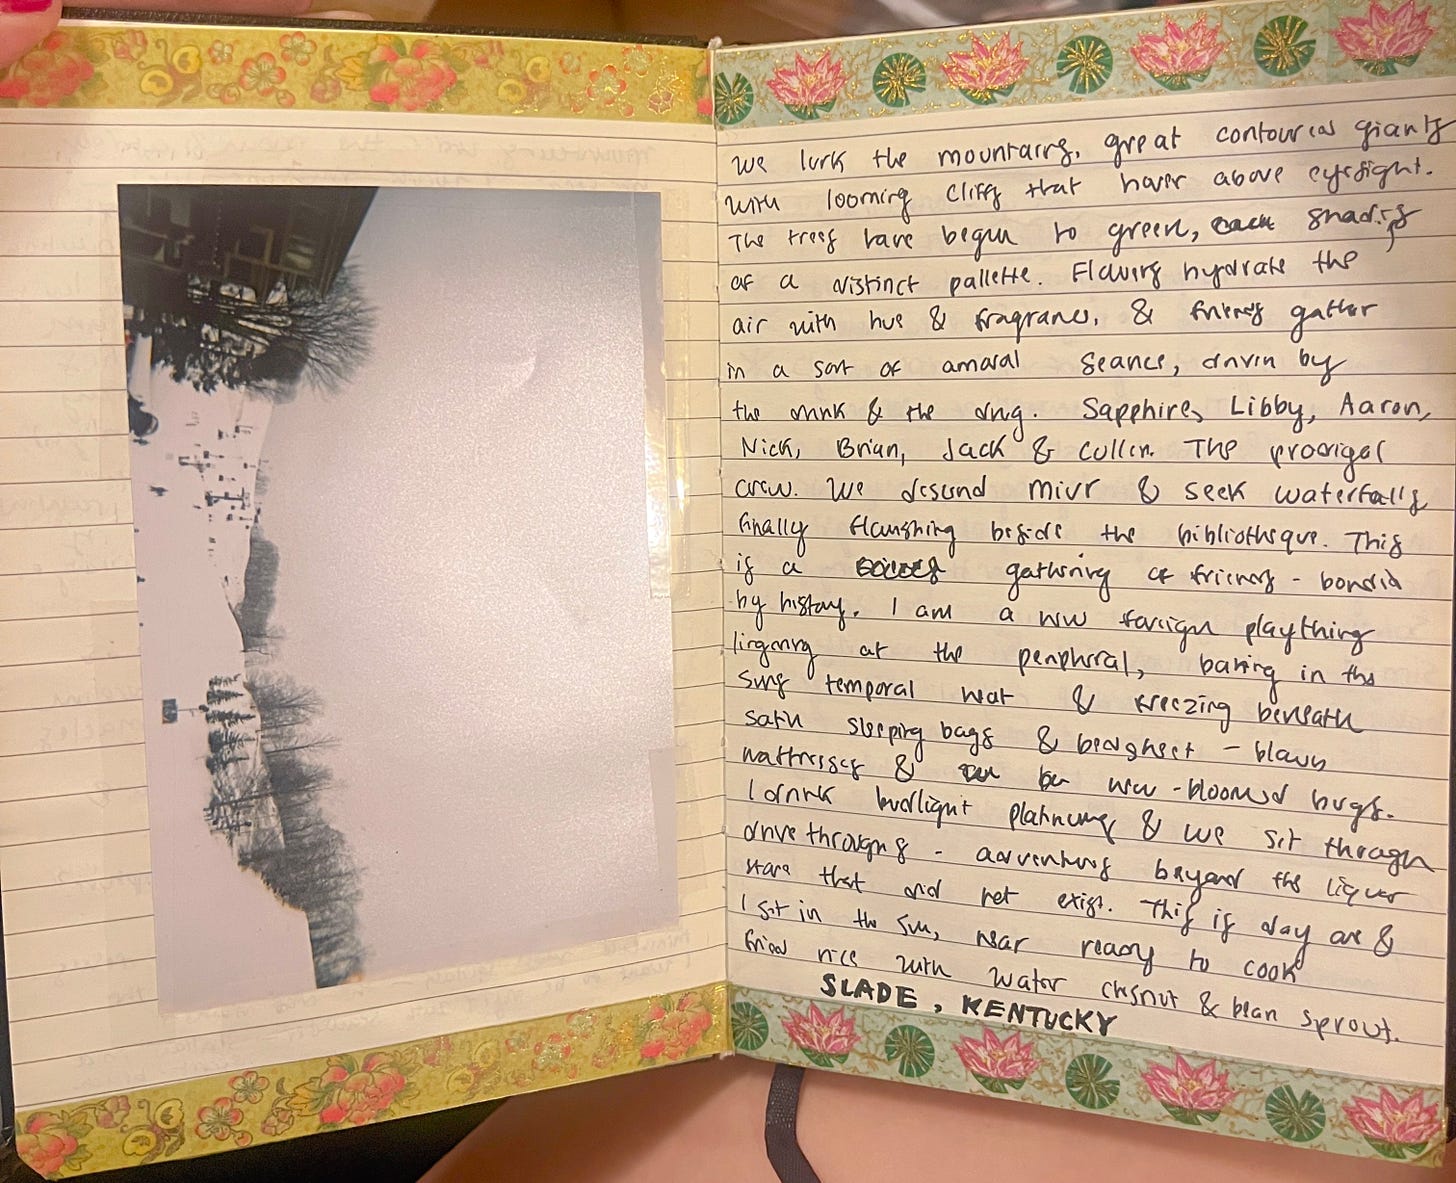 We lurk the mountains, great contoured giants
with looming cliffs that hover above eyesight.
The trees have begun to green, each shading
of a distinct pallette. Flowers hydrate the
air with hue & fragrance, & friends gather
in a sort of amoral seance, driven by
the drink & the drug. Sapphire, Libby, Aaron,
Nick, Brian, Jack & Cullen. The prodigal
crew. We descend river & seek waterfalls
finally flourishing beside the bibliotheque. This
is a gathering of friends - bonded
by history. I am a new foreign plaything
lingering at the peripheral, baking in the
suns temporal heat & freezing beneath
satin sleeping bags & bedsheet - blown
mattresses & new-bloomed bugs.
I drink budlight platinums & we sit through
drive throughs - adventures beyond the liquor
store that did not exist. This is day one &
I sit in the sun, near ready to cook
fried rice with water chesnut & bean sprout.
SLADE, KENTUCKY